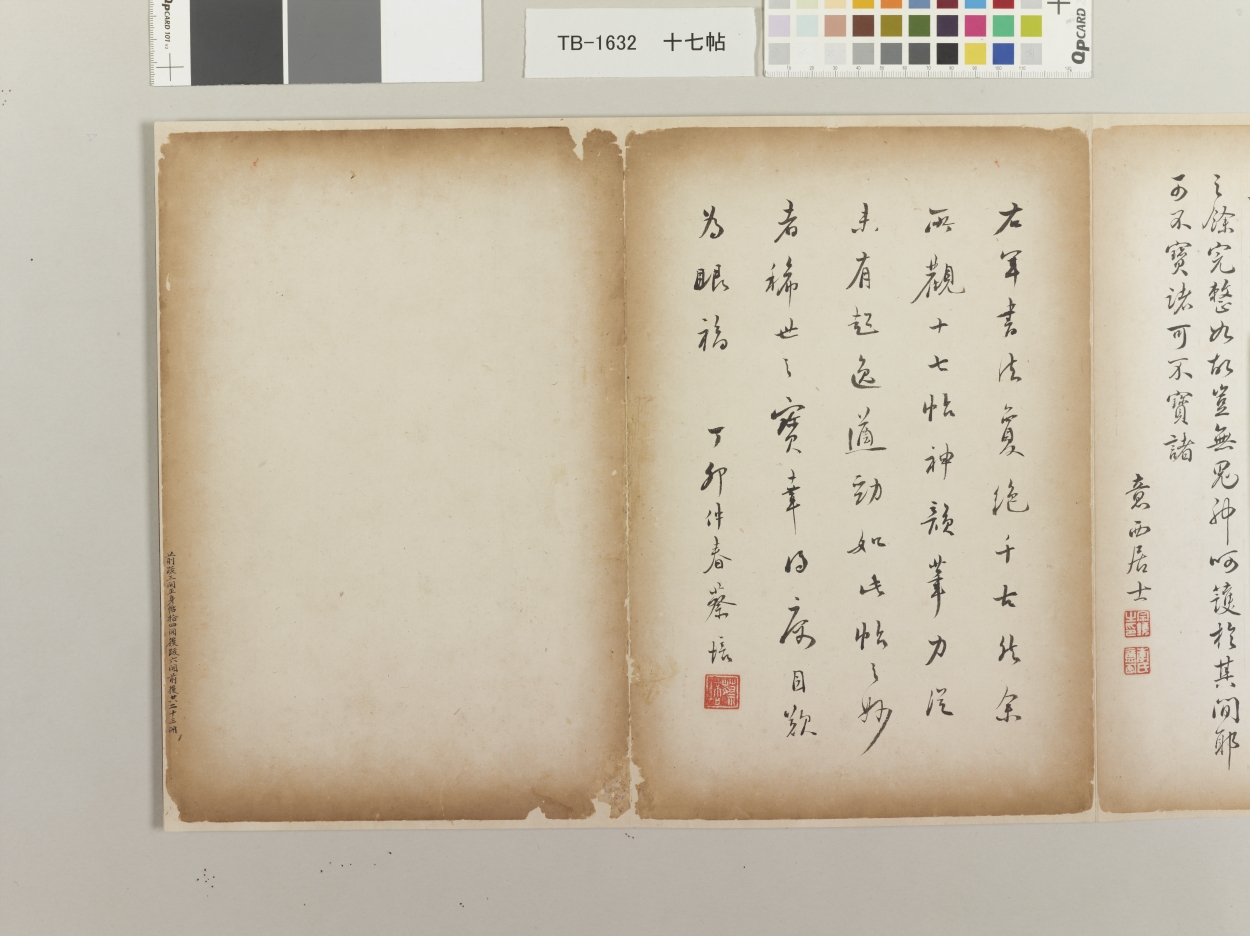 QPCARD 101
TB-1632 十七帖
QPCARD
之餘完整如故豈無鬼神呵護於其間耶
可不寶諸可不寶諸
意西居士
右軍書法夐絶千古然余
所觀十七帖神韻筆力從
未有超逸遒勁如此帖之妙
者稀世之寶幸得寓目歎
為眼福 丁卯仲春蔡培